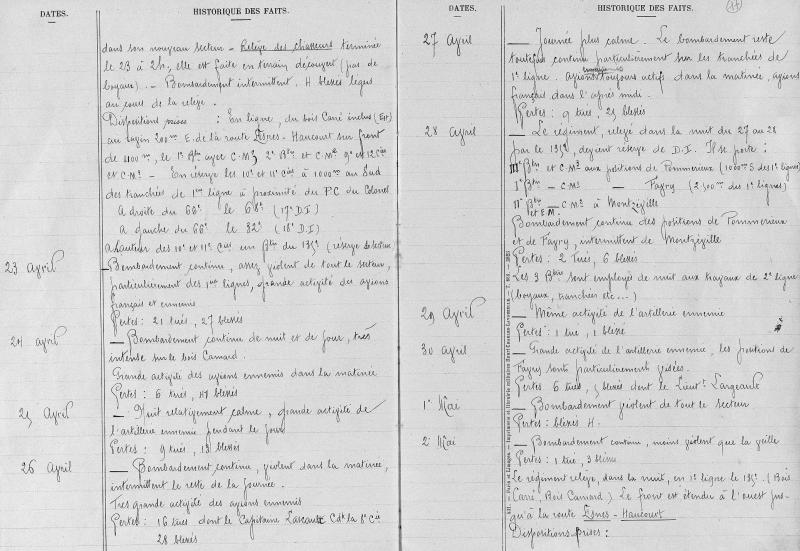 DATES.
HISTORIQUE DES FAITS.
dans son nouveau secteur - Relève des chasseurs terminée
le 23 à 2h, elle est faite en terrain découvert (pas de
boyaux). - Bombardement intermittent. 4 blessés légers
au cours de la relève.
Dispositions prises : En ligne, du bois Carré inclus (Est)
au ravin 200m E. de la route Esnes - Haucourt sur front
de 1100m, le 1er Bton avec C.M3, 2e Bton et C.M2 9e et 12 Cies
et C.M1 - En réserve les 10e et 11e Cies à 1000m au Sud
des tranchées de 1ère ligne à proximité du P.C du Colonel
A droite du 66e le 68e (17e D.I)
A gauche du 66e le 32e (18e D.I)
A hauteur des 10e et 11e Cies un Bton du 135e (réserve de secteur)
23 Avril
Bombardement continu, assez violent de tout le secteur,
particulièrement des 1ères lignes, grande activité des avions
français et ennemis
Pertes : 21 tués, 27 blessés
24 Avril
— Bombardement continu de nuit et de jour, très
intense sur le bois Camard.
Grande activité des avions ennemis dans la matinée
Pertes : 6 tués, 47 blessés
25 Avril
— Nuit relativement calme, grande activité de
l'artillerie ennemie pendant le jour
Pertes : 9 tués, 13 blessés
26 Avril
— Bombardement continu, violent dans la matinée,
intermittent le reste de la journée.
Très grande activité des avions ennemis
Pertes : 16 tués dont le Capitaine Cdt la 8e Cie
28 blessés
DATES.
HISTORIQUE DES FAITS.
27 Avril
— Journée plus calme. Le bombardement reste
toutefois continu particulièrement sur les tranchées de
1e ligne. Avions ennemis toujours actifs dans la matinée, avions
français dans l'après midi.
Pertes : 9 tués, 25 blessés
28 Avril
— Le régiment, relevé dans la nuit du 27 au 28
par le 135e, devient réserve de D.I. Il se porte :
IIIe Bton et C.M3 aux positions de Pommerieux (1000m S des 1e lignes)
Ie Bton - C.M1 - Favry (2500m des 1e lignes)
IIe Bton - C.M2 à Montzéville
et E.M.
Bombardement continu des positions de Pommerieux
et de Favry, intermittent de Montzéville
Pertes : 2 Tués, 6 blessés
Les 3 Btons sont employés de nuit aux travaux de 2e ligne
(boyaux, tranchées etc...)
29 Avril
— Même activité de l'artillerie ennemie
Pertes : 1 tué, 1 blessé
30 Avril
— Grande activité de l'artillerie ennemie, les positions de
Favry sont particulièrement visées.
Pertes 6 tués, 5 blessés dont le Lieut Largeault
1e Mai
— Bombardement violent de tout le secteur
Pertes : blessés 4.
2e Mai
— Bombardement continu, moins violent que la veille
Pertes : 1 tué, 3 blessés
Le régiment relève, dans la nuit, en 1e ligne le 135e (Bois
Carré, Bois Camard). Le front est étendu à l'ouest jus-
qu'à la route Esnes - Haucourt
Dispositions prises :